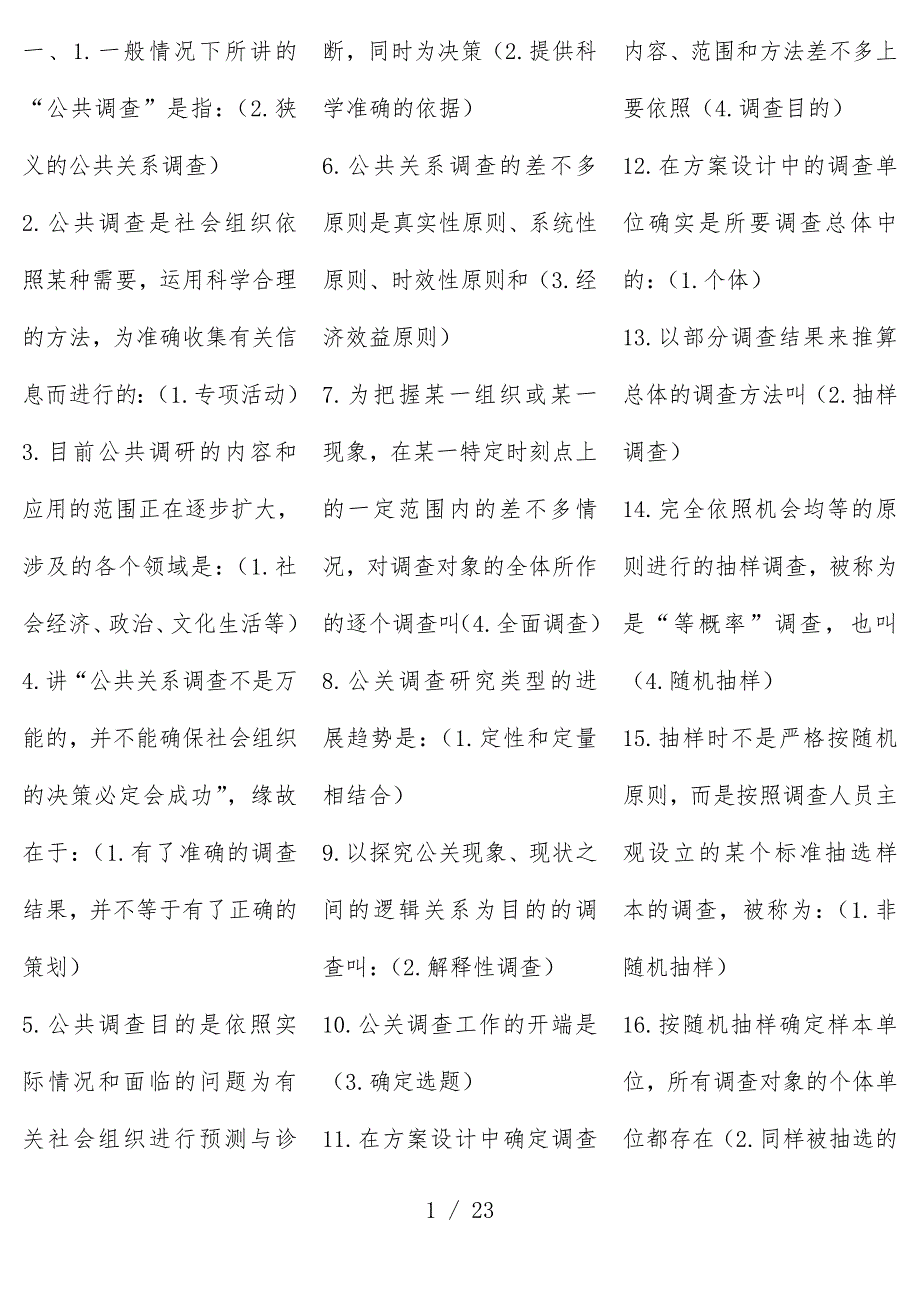 一、1.一般情况下所讲的
“公共调查”是指：（2.狭
义的公共关系调查）
2.公共调查是社会组织依
照某种需要，运用科学合理
的方法，为准确收集有关信
息而进行的：（1.专项活动）
3.目前公共调研的内容和
应用的范围正在逐步扩大，
涉及的各个领域是：（1.社
会经济、政治、文化生活等）
4.讲“公共关系调查不是万
能的，并不能确保社会组织
的决策必定会成功”，缘故
在于：（1.有了准确的调查
结果，并不等于有了正确的
策划）
5.公共调查目的是依照实
际情况和面临的问题为有
关社会组织进行预测与诊
断，同时为决策（2.提供科
学准确的依据）
6.公共关系调查的差不多
原则是真实性原则、系统性
原则、时效性原则和（3.经
济效益原则）
7.为把握某一组织或某一
现象，在某一特定时刻点上
的一定范围内的差不多情
况，对调查对象的全体所作
的逐个调查叫（4.全面调查）
8.公关调查研究类型的进
展趋势是：（1.定性和定量
相结合）
9.以探究公关现象、现状之
间的逻辑关系为目的的调
查叫：（2.解释性调查）
10.公关调查工作的开端是
（3.确定选题）
11.在方案设计中确定调查
内容、范围和方法差不多上
要依照（4.调查目的）
12.在方案设计中的调查单
位确实是所要调查总体中
的：（1.个体）
13.以部分调查结果来推算
总体的调查方法叫（2.抽样
调查）
14.完全依照机会均等的原
则进行的抽样调查，被称为
是“等概率”调查，也叫
（4.随机抽样）
15.抽样时不是严格按随机
原则，而是按照调查人员主
观设立的某个标准抽选样
本的调查，被称为：（1.非
随机抽样）
16.按随机抽样确定样本单
位，所有调查对象的个体单
位都存在（2.同样被抽选的
1 / 23